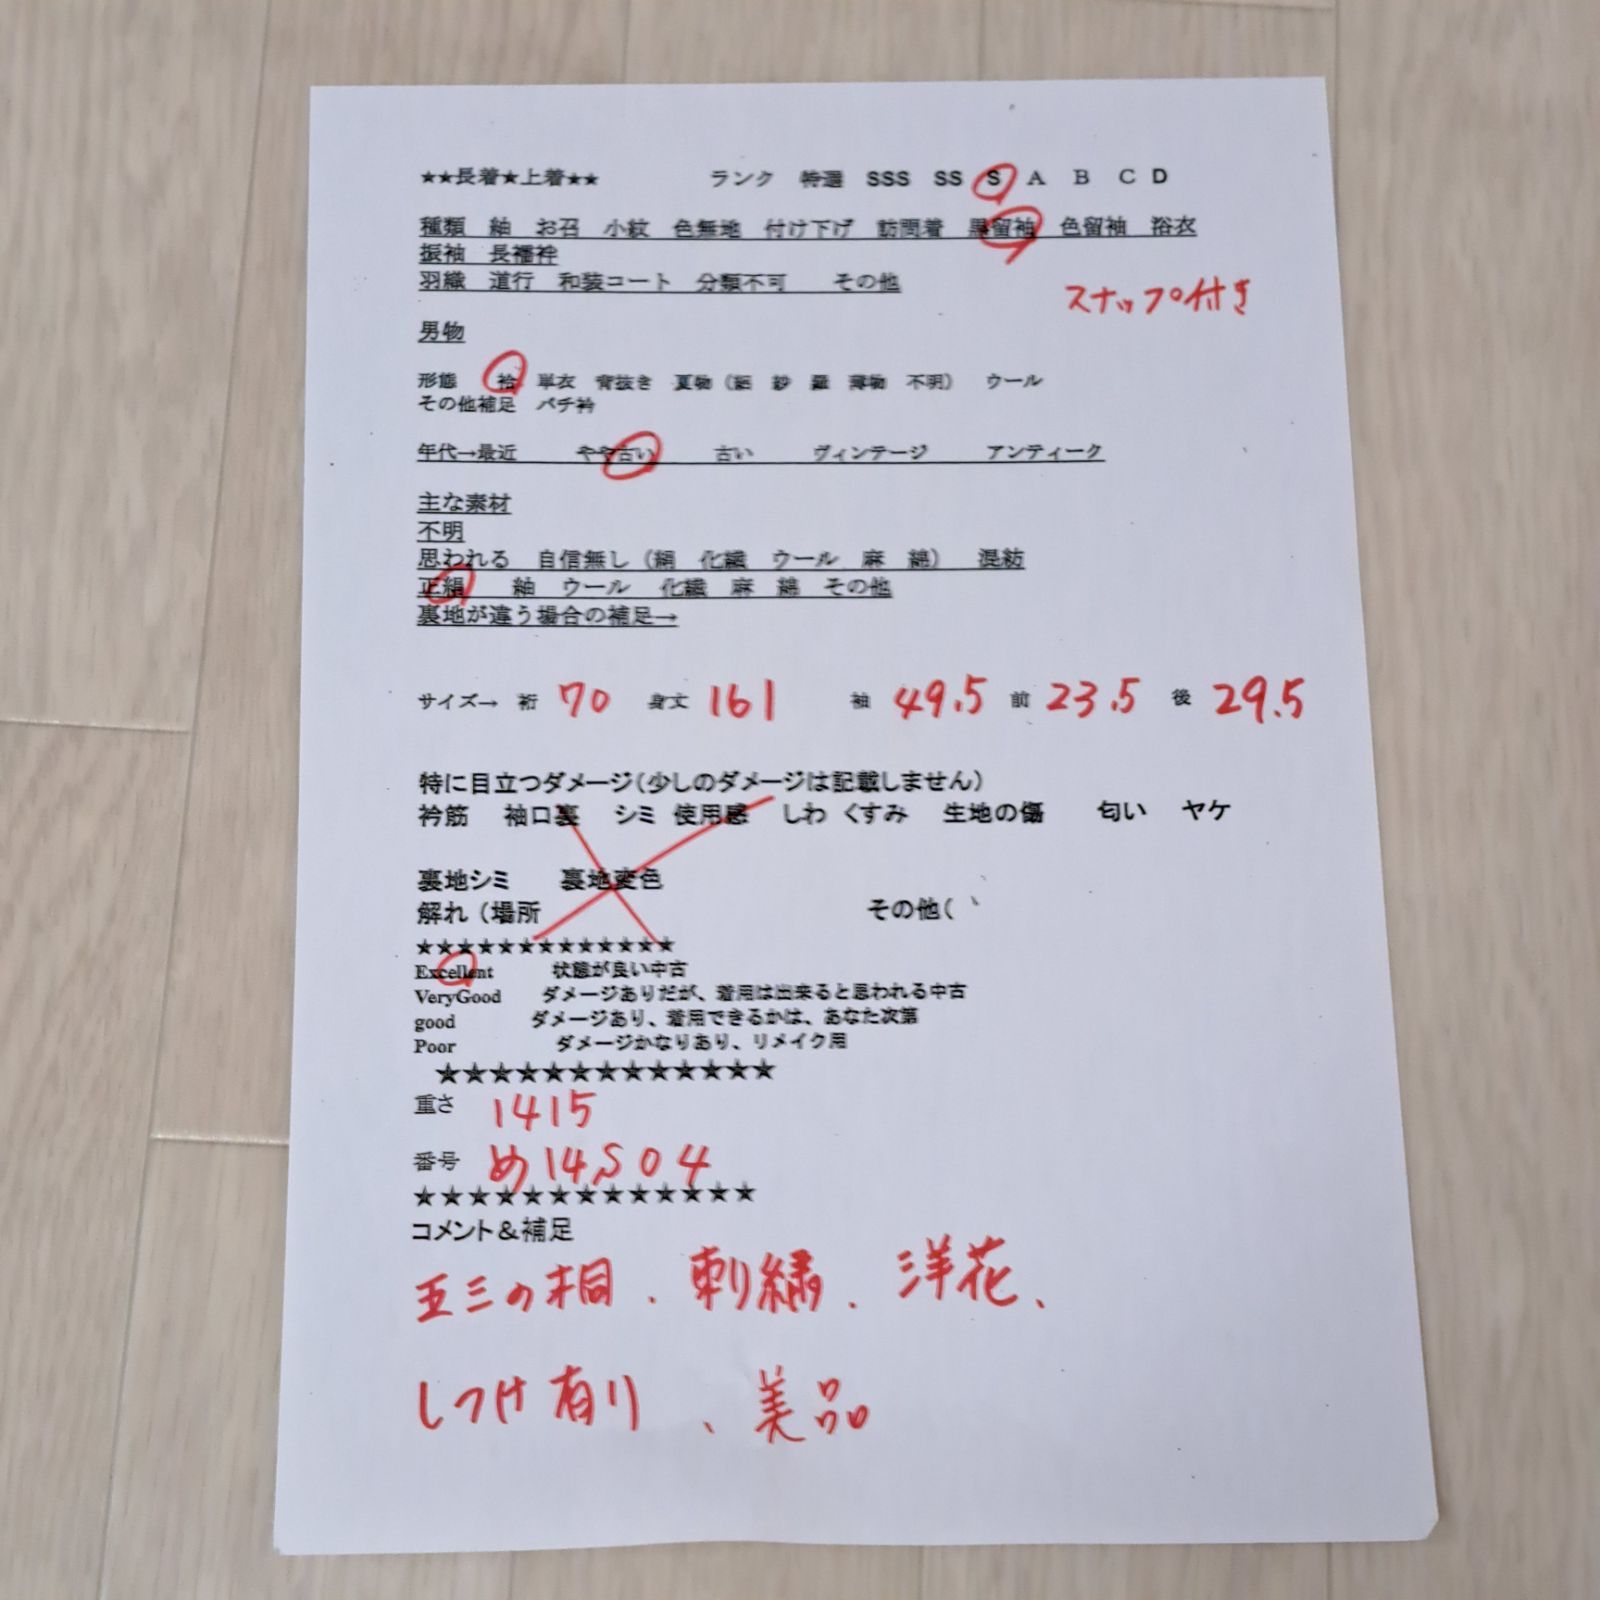 ★★長着★上着★★ ランク 特選 SSS SS S A B C D
種類 紬 お召 小紋 色無地 付け下げ 訪問着 黒留袖 色留袖 浴衣
振袖 長襦袢
羽織 道行 和装コート 分類不可 その他
スナップ付き
男物
形態 袷 単衣 背抜き 夏物（絽 紗 羅 薄物 不明） ウール
その他補足 バチ衿
年代→最近 やや古い 古い ヴィンテージ アンティーク
主な素材
不明
思われる 自信無し（絹 化繊 ウール 麻 綿） 混紡
正絹 紬 ウール 化繊 麻 綿 その他
裏地が違う場合の補足→
サイズ→ 裄 70 身丈 161 袖 49.5 前 23.5 後 29.5
特に目立つダメージ（少しのダメージは記載しません）
衿筋 袖口裏 シミ 使用感 しわ くすみ 生地の傷 匂い ヤケ
裏地シミ 裏地変色
解れ（場所 その他（
★★★★★★★★★★★★★
Excellent 状態が良い中古
VeryGood ダメージありだが、着用は出来ると思われる中古
good ダメージあり、着用できるかは、あなた次第
Poor ダメージかなりあり、リメイク用
★★★★★★★★★★★★★
重さ 1415
番号 め14S04
★★★★★★★★★★★★★
コメント＆補足
五三の桐、刺繍、洋花、
しつけ有り、美品